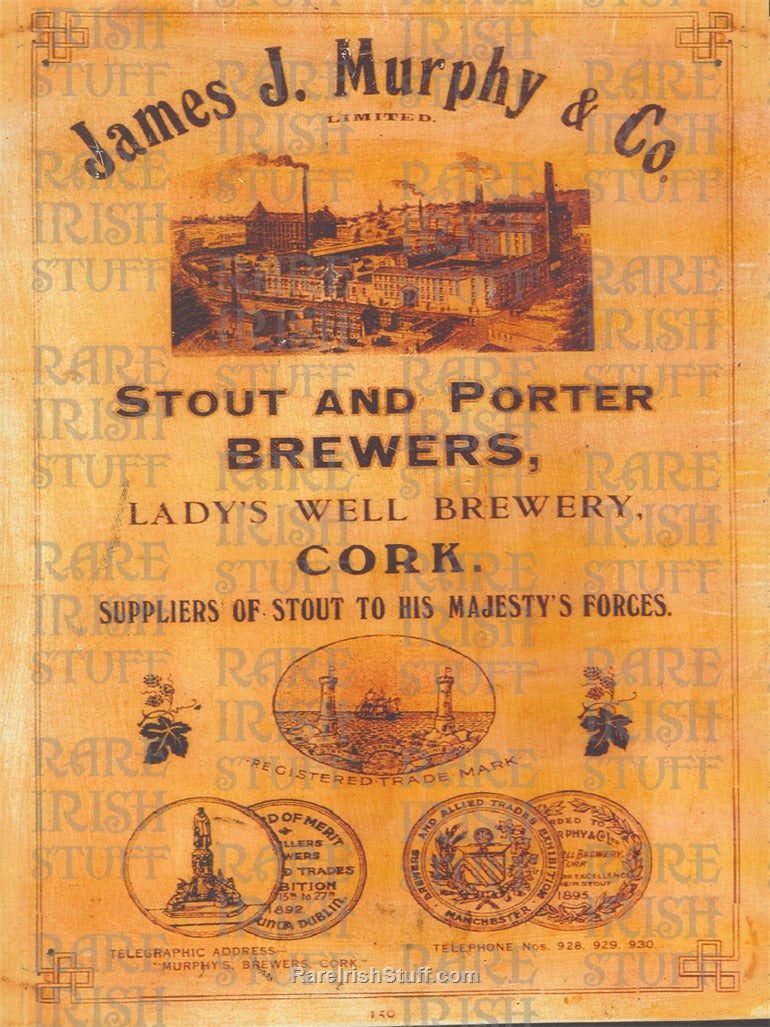 James J. Murphy & Co.
LIMITED.
STOUT AND PORTER
BREWERS,
LADY'S WELL BREWERY,
CORK.
SUPPLIERS OF STOUT TO HIS MAJESTY'S FORCES.
REGISTERED TRADE MARK
D OF MERIT
LLERS
WERS
D TRADES
BITION
15th to 27th
1892
DUBLIN.
BREWERS AND ALLIED TRADES EXHIBITION
MANCHESTER
RDED TO
RPHY & Co
LL BREWERY
CORK
OR EXCELLENCE
STOUT
1895
TELEGRAPHIC ADDRESS—
"MURPHY'S, BREWERS, CORK."
TELEPHONE Nos. 928, 929, 930.
RareIrishStuff.com
RARE
IRISH
STUFF